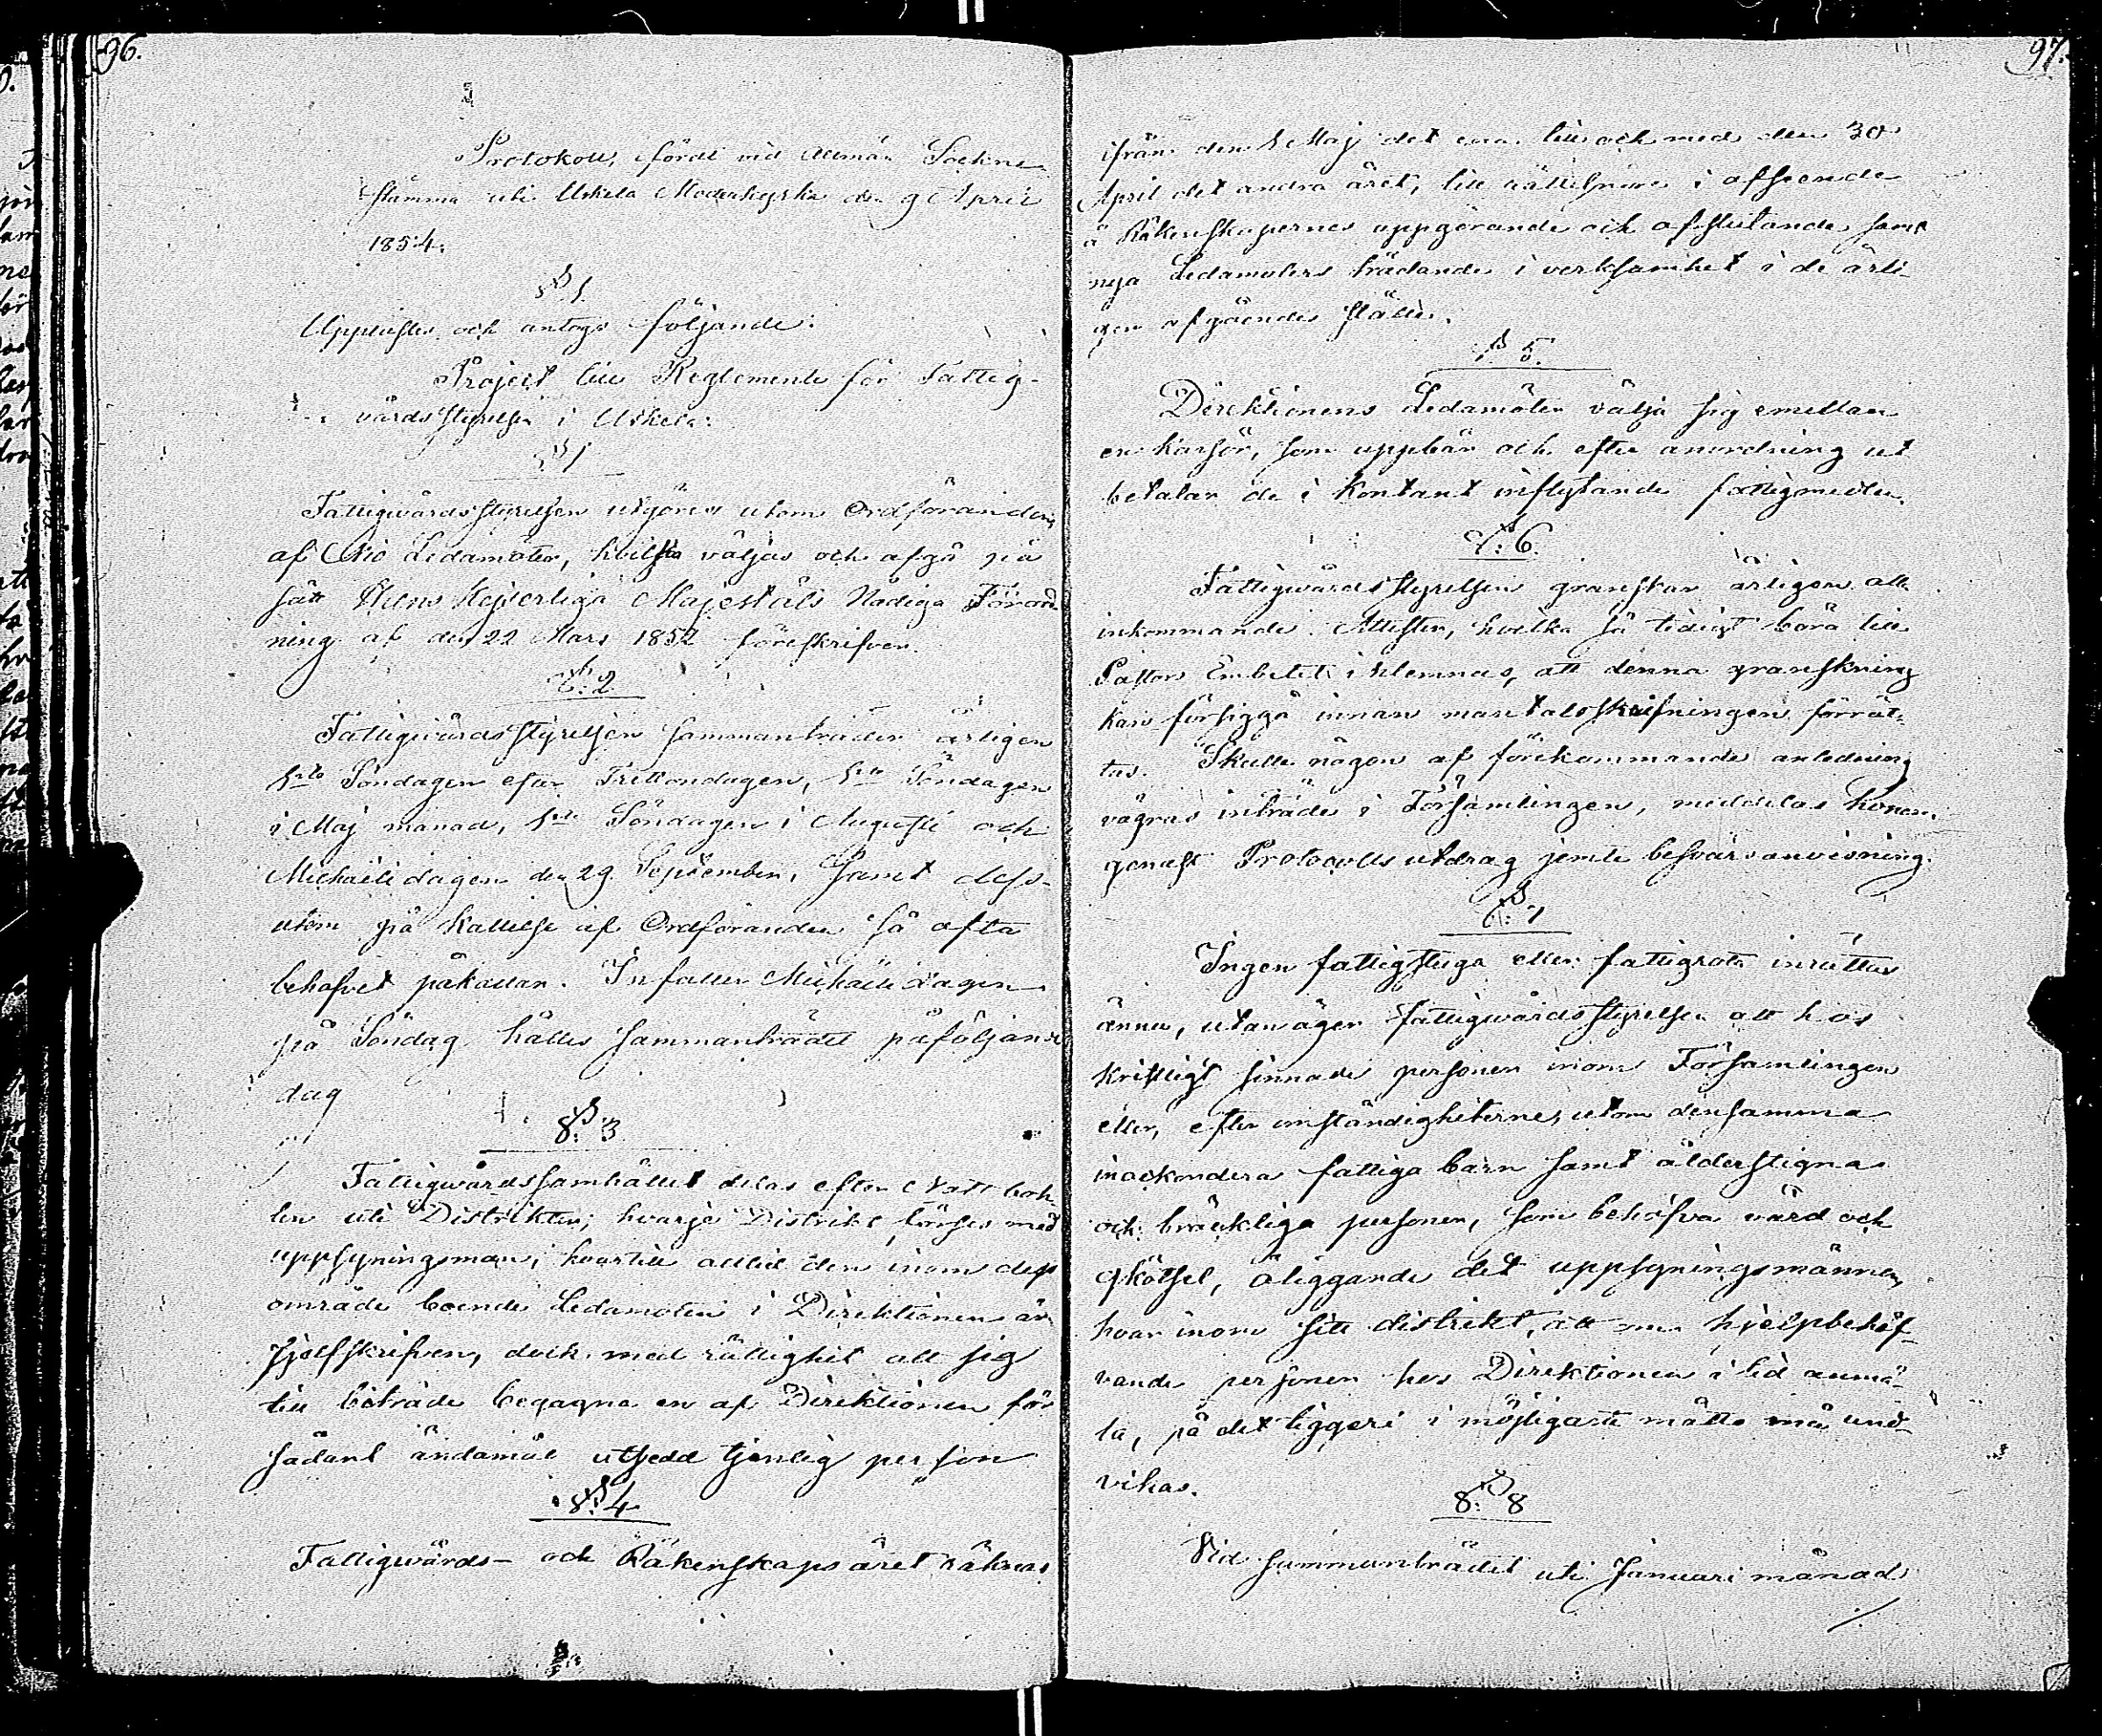 96.
Protokoll, fördt vid allmän Sockne
stämma uti Uskela Moderkyrka den 9 April
1854.
§ 1
Upplästes och antogs följande:
Project till Reglemente för Fattig-
vårdsstyrelsen i Uskela:
§ 1
Fattigvårdsstyrelsen utgöres utom Ordföranden,
af Nio Ledamöter, hvilka väljas och afgå på
sätt Hans Kejserliga Majestäts Nådiga Förord-
ning af den 22 Mars 1852 föreskrifver.
§: 2
Fattigvårdsstyrelsen sammanträder årligen
1sta Söndagen efter Trettondagen, 1sta Söndagen
i Maj månad, 1sta Söndagen i Augusti och
Michaëli dagen den 29 September, samt dess-
utom på kallelse af Ordföranden så ofta
behofvet påkallar. Infaller Michaëli dagen
på Söndag hålles sammanträdet påföljande
dag
§: 3
Fattigvårdssamhället delas efter Natt
uti Distrikter; hvarje Distrikt förses med
uppsyningsman, hvartill alltid den inom dess
område boende Ledamoten i Direktionen är
sjelfskrifven, dock med rättighet att sig
till biträde begagna en af Direktionen för
sådant ändamål utsedd tjenlig person
§: 4
Fattigvårds- och Räkenskapsåret räknas
97.
ifrån den 1 Maj det ena till och med den 30
April det andra året, till rättelse i afseende
å Räkenskapernes uppgörande och afslutande samt
nya Ledamöters trädande i verksamhet i de årli-
gen afgåendes ställe.
§ 5.
Direktionens Ledamöter välja sig emellan
en kassör, som uppbär och efter anordning ut
betalar de i kontant inflytande fattigmedlen.
§: 6.
Fattigvårdsstyrelsen granskar årligen alla
inkommande Attester, hvilka så tidigt böra till
Pastors Embetet inlemnas, att denna granskning
kan försiggå innan mantalsskrifningen förrät-
tas. Skulle någon af förekommande anledning
vägras inträde i Församlingen, meddelas honom
genast Protocolls utdrag jemte besvärsanvisning.
§: 7
Ingen fattigstuga eller fattigrota inrättas
ännu, utan äger fattigvårdsstyrelsen att hos
kristligt sinnade personer inom Församlingen
eller, efter omständigheterne, utom densamma
inackordera fattiga barn samt ålderstigna
och bräckliga personer, som behöfva vård och
skötsel, åliggande det uppsyningsmännen,
hvar inom sitt distrikt, att om hjelpbehöf-
vande personer hos Direktionen i tid anmä-
la, på det tiggeri i möjligaste måtto må und-
vikas.
§: 8
Vid sammanträdet uti Januari månad